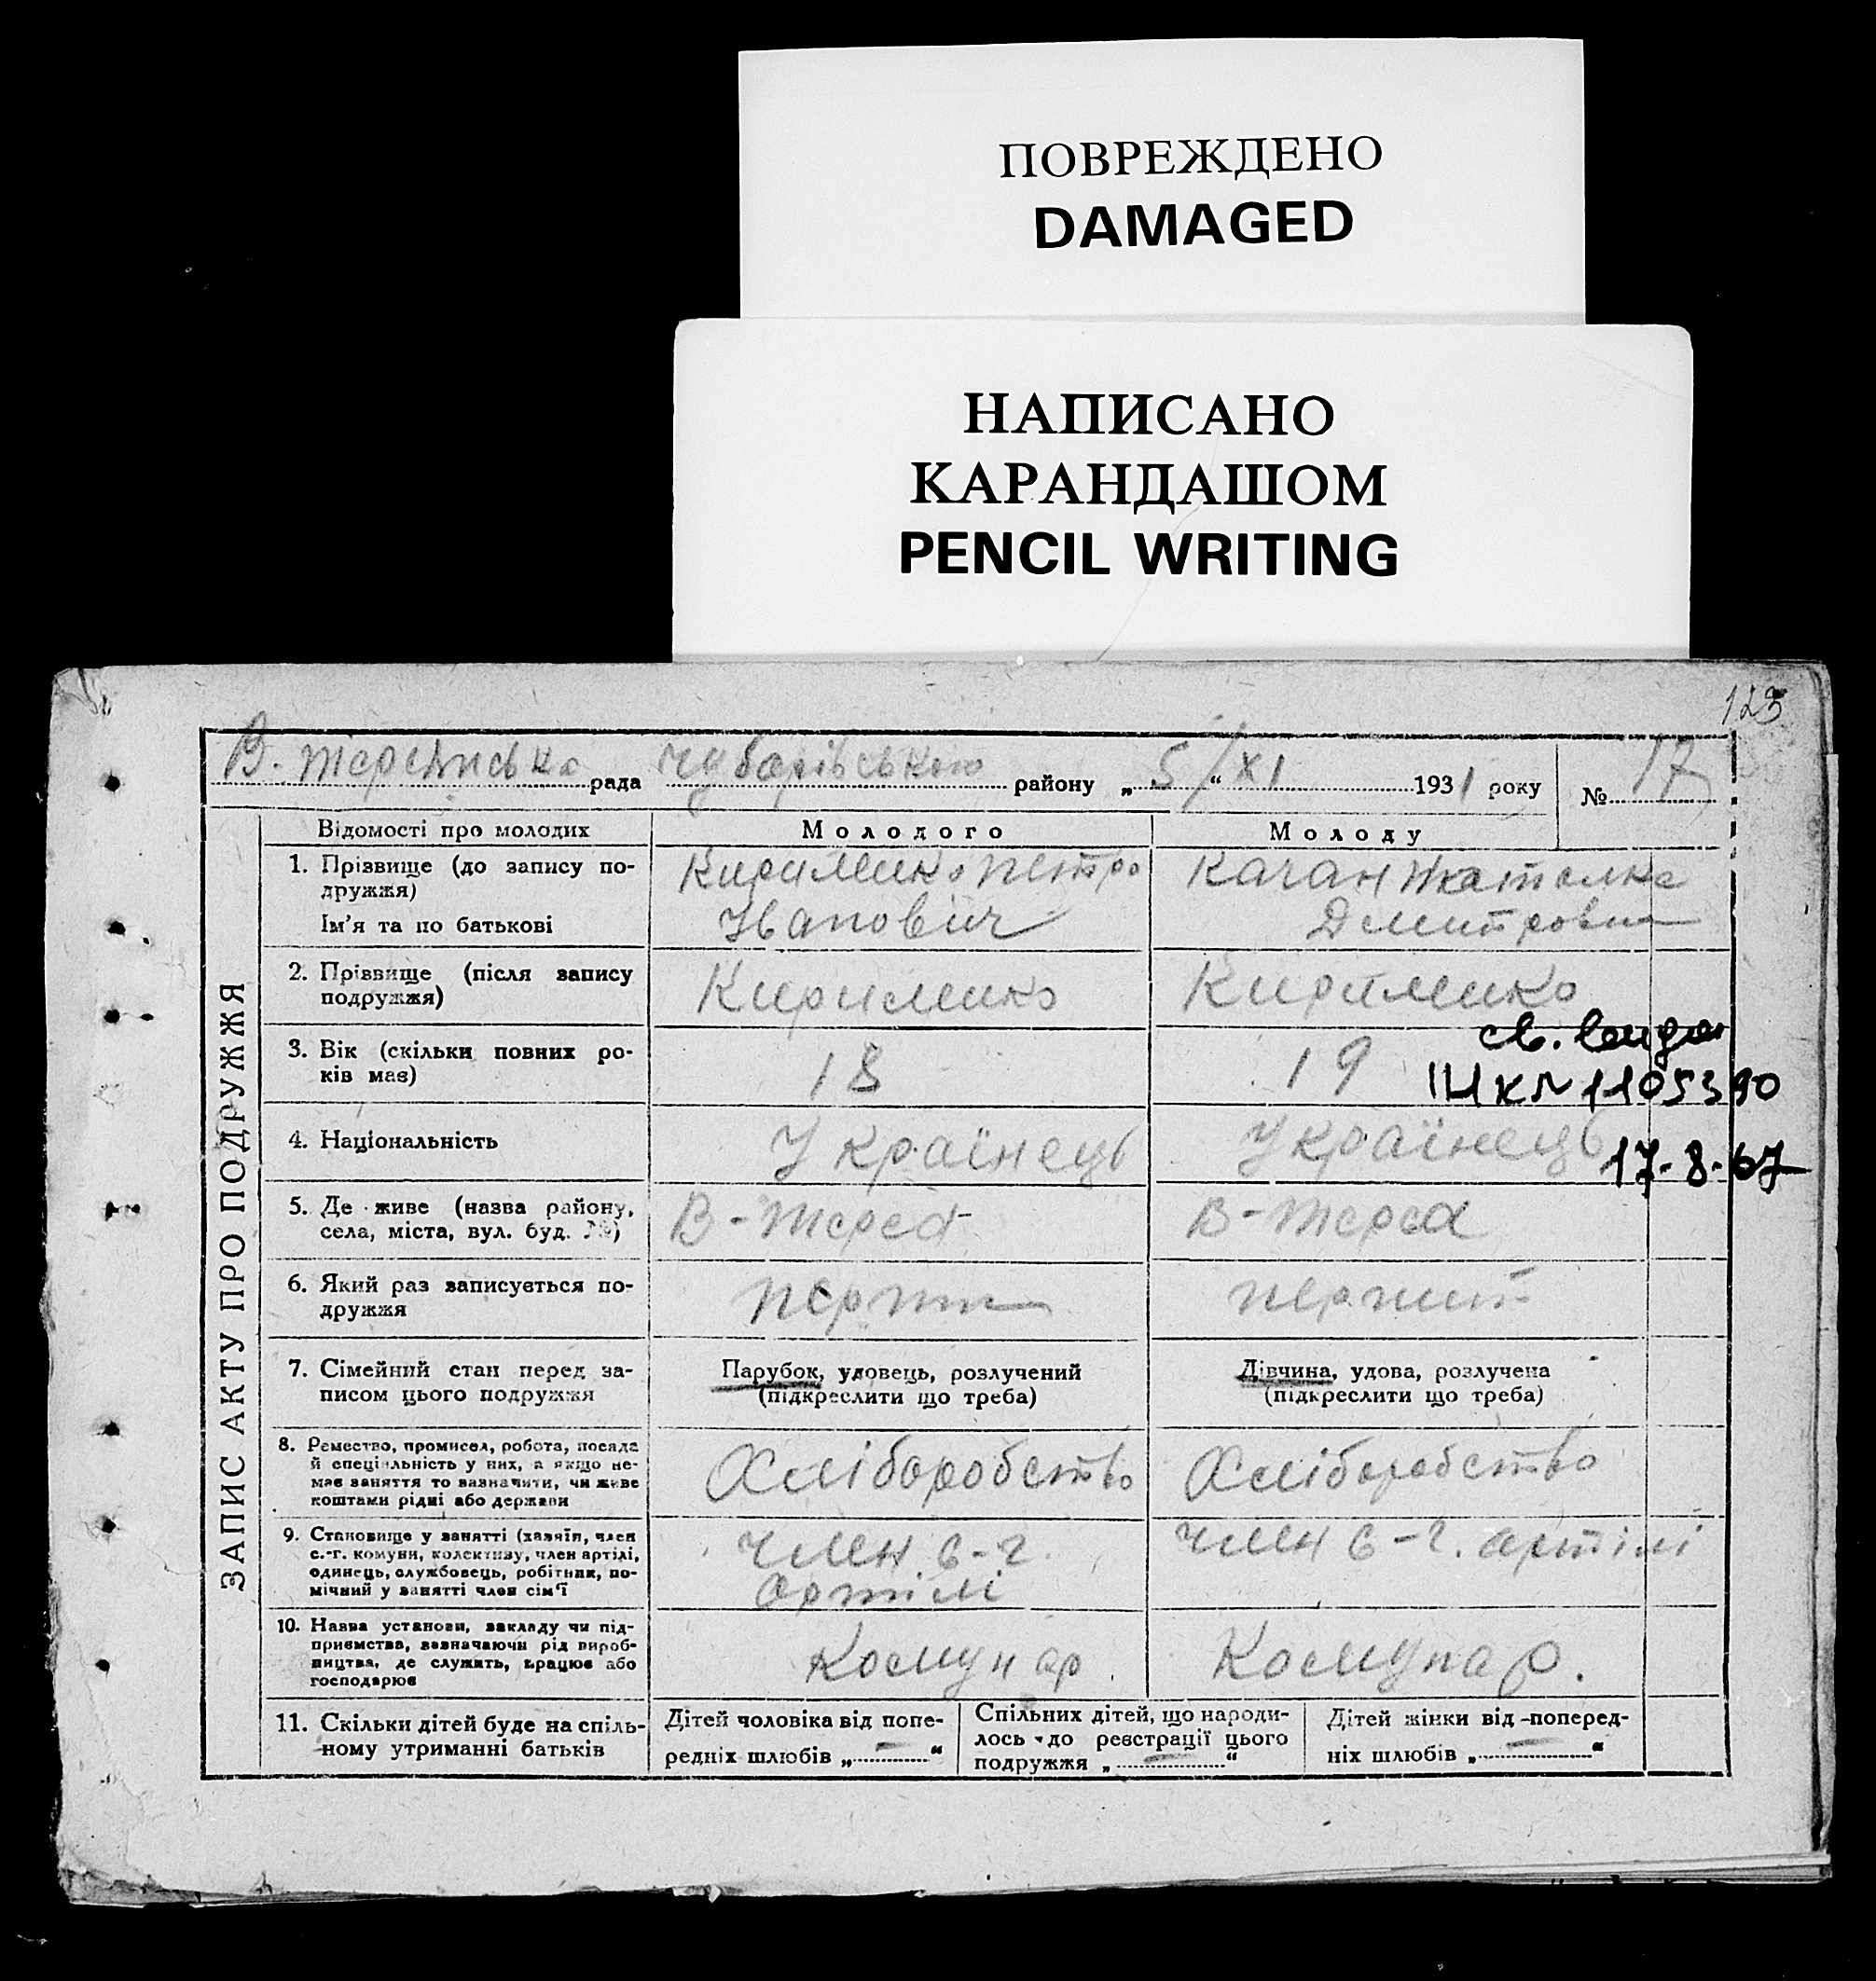 ПОВРЕЖДЕНО
DAMAGED
НАПИСАНО
КАРАНДАШОМ
PENCIL WRITING
123
В. Терсянська рада Чубарівського району „ 5 / “ XI 1931 року № 17
ЗАПИС АКТУ ПРО ПОДРУЖЖЯ
Відомості про молодих Молодого Молоду
1. Прізвище (до запису по-
дружжя)
Ім’я та по батькові
Кириленко Петро
Іванович
Качан Наталка
Дмитровна
2. Прізвище (після запису
подружжя)
Кириленко
Кириленко
3. Вік (скільки повних ро-
ків має)
18
19
св. выдан
ШКN 1105390
17-8-67
4. Національність
Українець
Українець
5. Де живе (назва району,
села, міста, вул. буд. №)
В-Терса
В-Терса
6. Який раз записується по-
дружжя
7. Сімейний стан перед за-
писом цього подружжя
Парубок, удовець, розлучений
(підкреслити що треба)
Дівчина, удова, розлучена
(підкреслити що треба)
8. Ремество, промисел, робота, посада
й спеціяльність у них, а якщо не-
має заняття то вазначити, чи живе
коштами рідні або держави
Хліборобство
Хліборобство
9. Становище у занятті (хазяїн, член
с.-г. комуни, колективу, член артілі,
одинець, службовець, робітник, по-
мічний у занятті член сім'ї
Член с-г.
артілі
Член с-г. артілі
10. Назва установи, закладу чи під-
приємства, зазначаючи рід вироб-
ництва, де служить, працює або
господарює
Комунар
Комунар.
11. Скільки дітей буде на спіль-
ному утриманні батьків
Дітей чоловіка від попе-
редніх шлюбів „ — “
Спільних дітей, що народи-
лось до реєстрації цього
подружжя „ — “
Дітей жінки від поперед-
ніх шлюбів „ — “